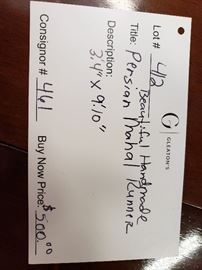 G | GLEATON'S
Lot # 412
Beautiful Handmade
Title: Persian Mahal Runner
Description:
3.4" x 9.10"
Consignor # 461 Buy Now Price: $500.00